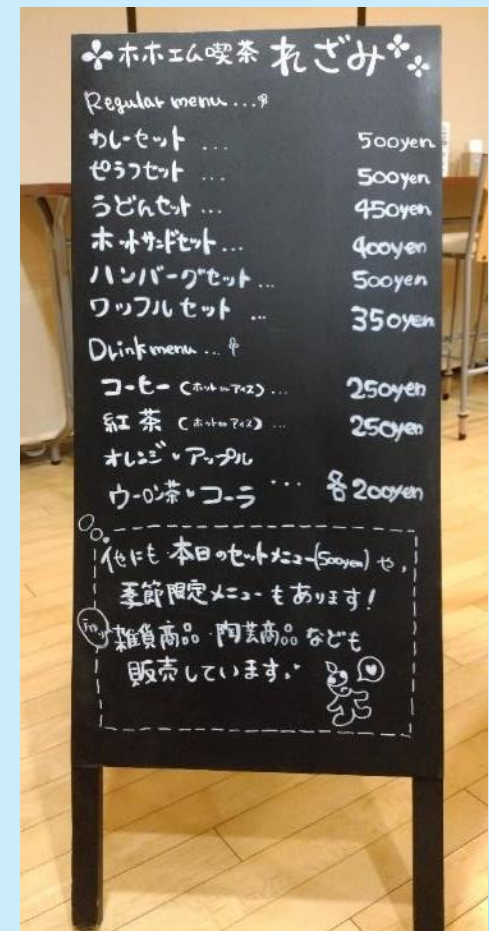 ホホエム喫茶 れざみ
Regular menu...
カレーセット ... 500yen
ピラフセット ... 500yen
うどんセット ... 450yen
ホットサンドセット ... 400yen
ハンバーグセット ... 500yen
ワッフルセット ... 350yen
Drink menu...
コーヒー (ホット or アイス) ... 250yen
紅茶 (ホット or アイス) ... 250yen
オレンジ・アップル
ウーロン茶・コーラ ... 各200yen
他にも 本日のセットメニュー(500yen) や、
季節限定メニューもあります!
雑貨商品・陶芸商品なども
販売しています。